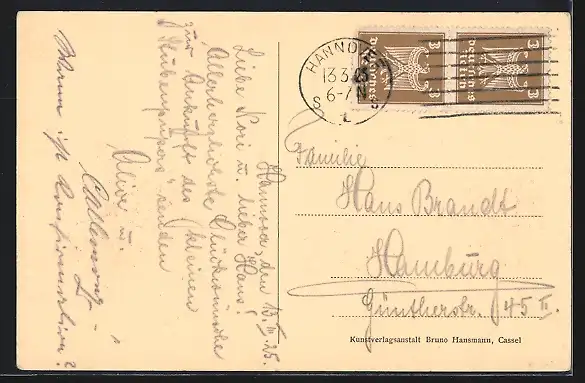 Hannover, den 13. III. 25.
Liebe Kori u. lieber Hans!
Allerherzlichste Glückwünsche
zur Ankunft des kleinen
Stubenpupers senden
Alive u.
Wann ist Konfirmation?
HANNOVER
13.3.25
6-7 N
S
L
3
Deutsches Reich
3
Deutsches Reich
Familie
Hans Brandt
Hamburg
Güntherstr. 45 II.
Kunstverlagsanstalt Bruno Hansmann, Cassel